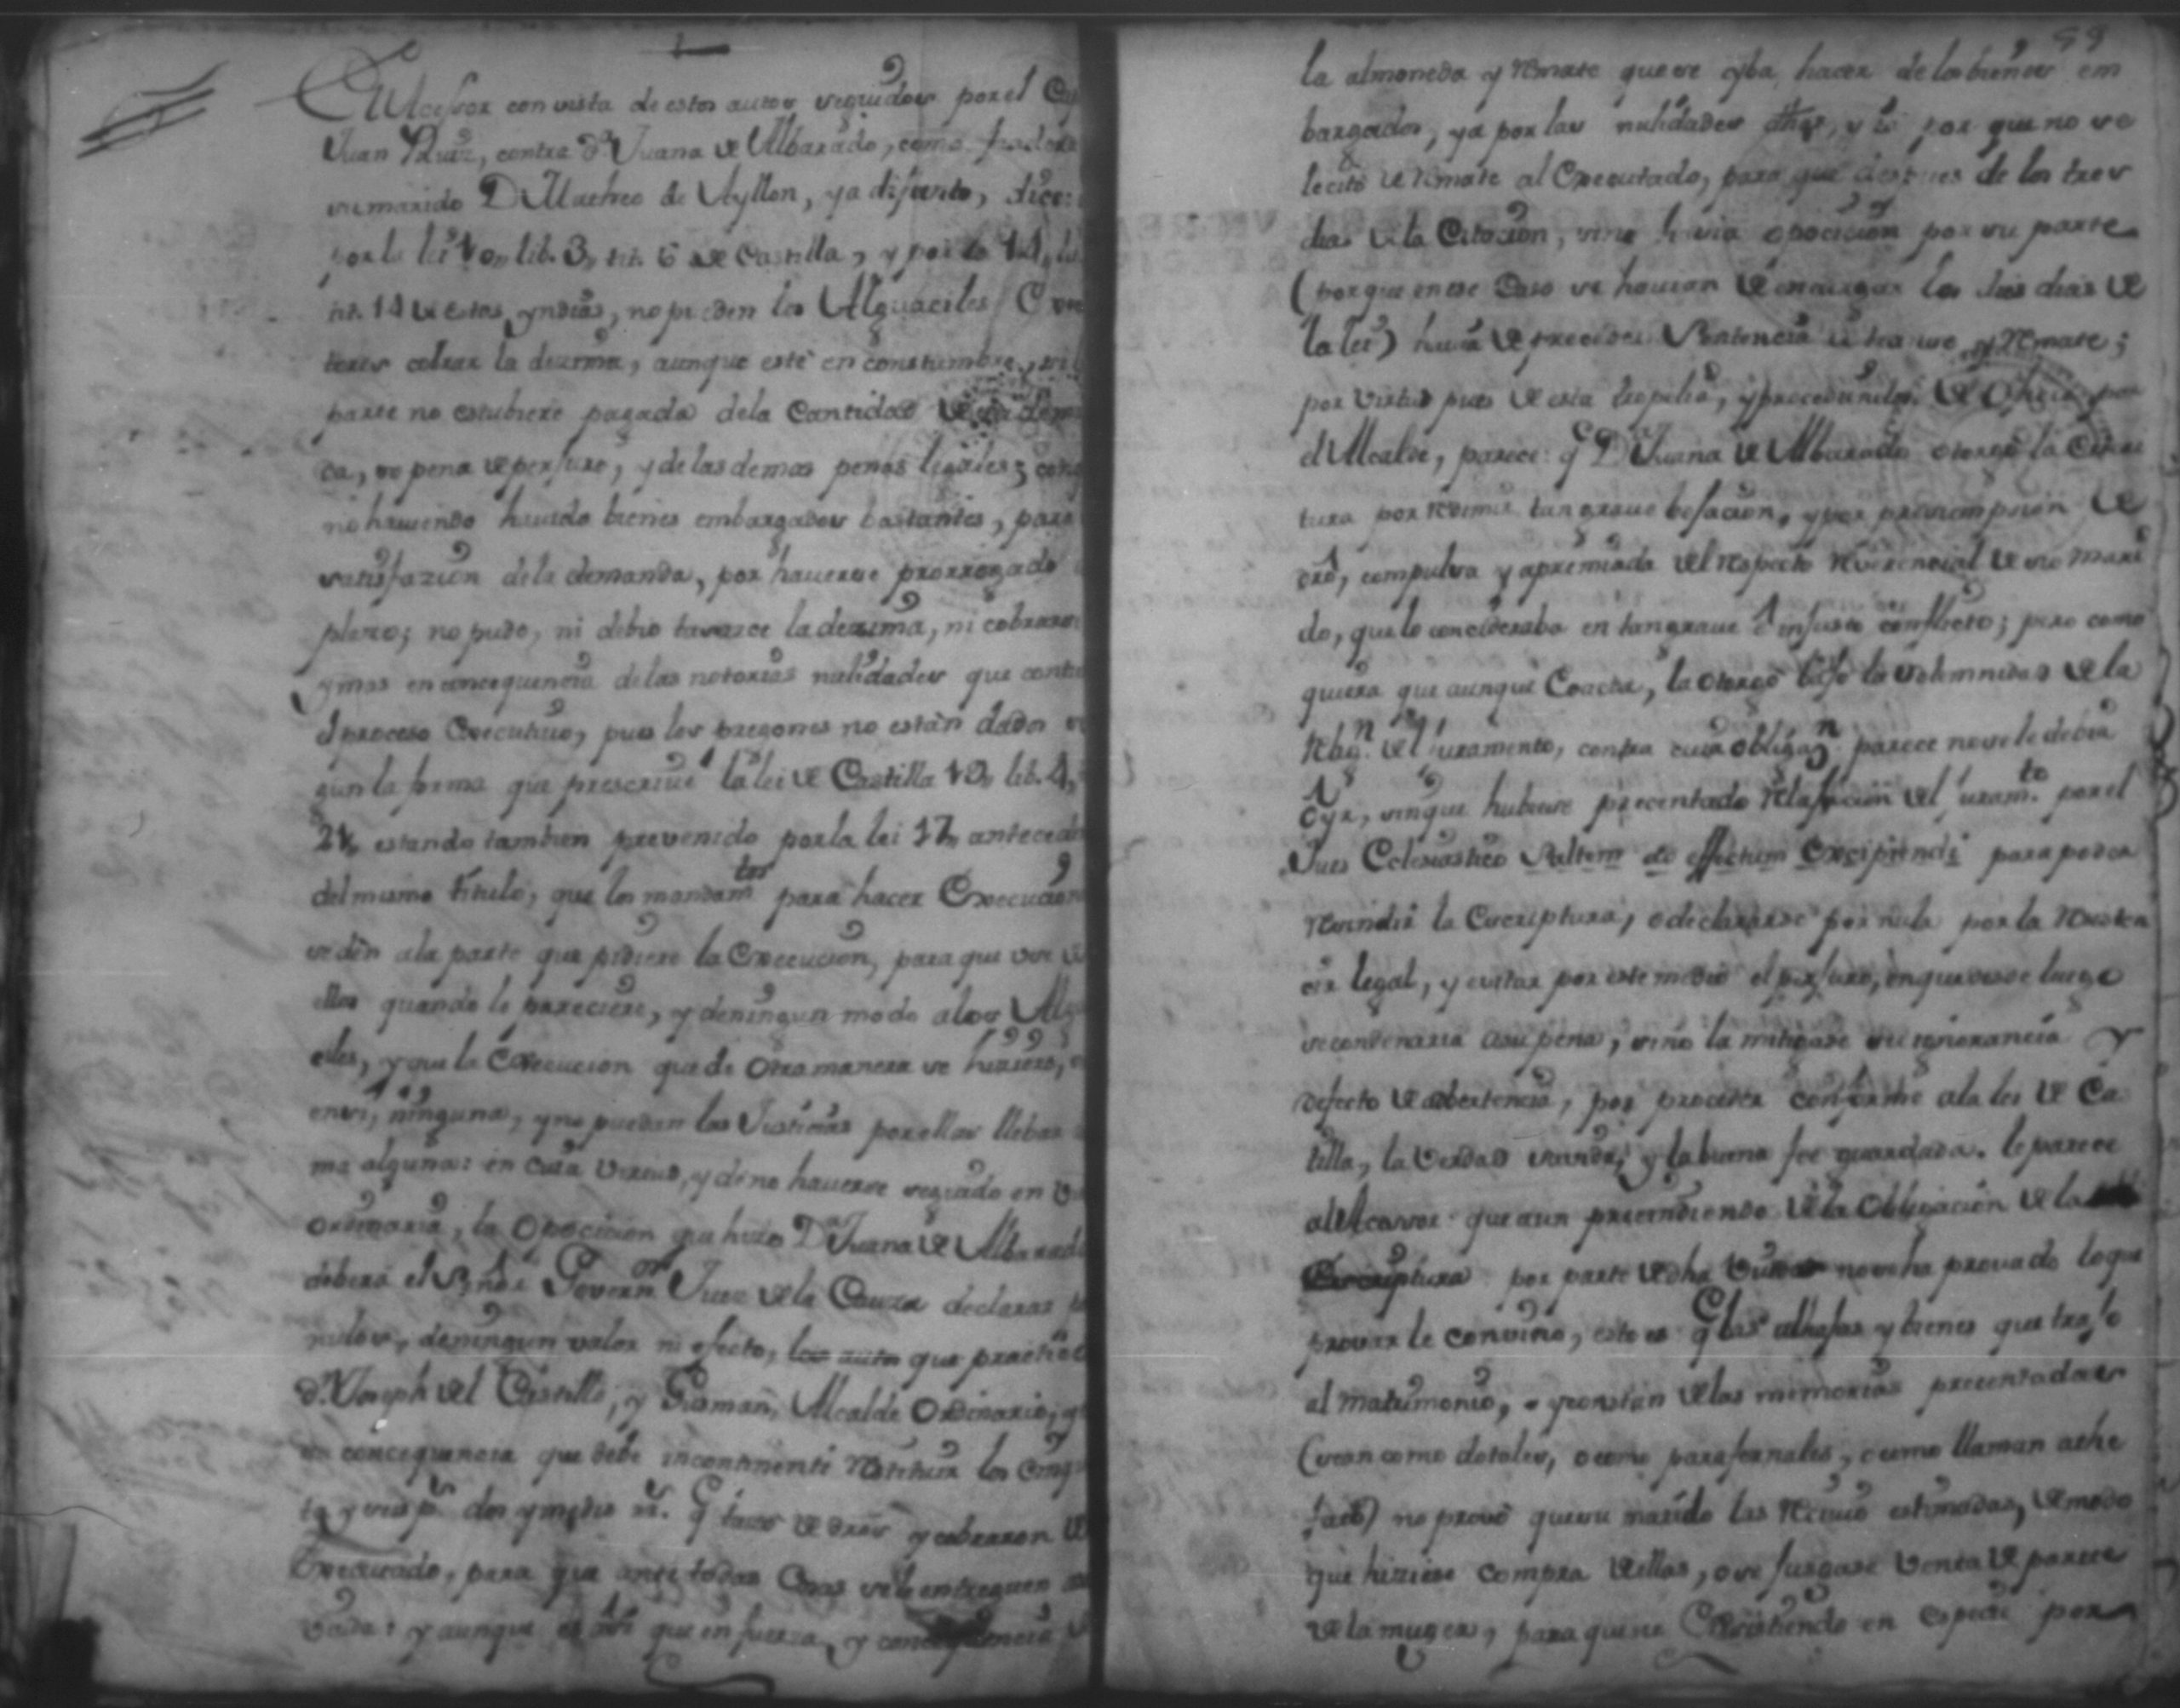 El Acessor con vista de estos autos seguidos por el
Juan Ruiz, contra Dª Juana de Albarado, como fiadora
su marido D Matheo de Ayllon, ya difunto, dice:
por la lei 10, lib. 3, tit. 6 de Castilla, y por la 14, lib.
tit. 14 de estas yndias, no pueden los Alguaciles
cobrar la dezima, aunque esté en constumbre,
parte no estubiere pagada de la Cantidad
so pena de perjuro, y de las demas penas legales;
no haviendo havido bienes embargados bastantes, para
satisfazion de la demanda, por haverse prorrogado
plazo; no pudo, ni debio tasarce la dezima, ni cobrarse
y mas en concequencia de las notorias nulidades que
el proceso Executivo, pues los pregones no están dados
gun la forma que prescrive la lei de Castilla 19, lib. 4,
21, estando tambien prevenido por la lei 17,
del mismo titulo, que los mandamtos para hacer Execucion
se dén a la parte que pidiere la Execucion, para que use
ellos quando le pareciere, y de ningun modo a los
ciles, y que la Execucion que de otra manera se hiziere,
en si, ninguna, y no puedan las Justicias por ellas llebar
ma alguna: en cuia virtud, y de no haverse seguido en
ordinaria, la oposicion que hizo Dª Juana de Albarado
deberá el Señor Governor Juez de la Causa declarar
nulos, de ningun valor ni efecto, los autos que practicó
Dn Joseph del Castillo, y Gusman, Alcalde Ordinario,
en concequencia que debe incontinenti restituir los
ta y seis ps dos y medio rs. q taso de dros y cobraron
Executado, para que ante todas Cosas se le entreguen
y aunque es asi que en fuerza, y concequencia
99
la almoneda y remate que se yba hacer de los bienes em
bargados, ya por las nulidades dhas, y ia por que no se
le citó de remate al Executado, para que despues de los tres
dias de la Citacion, sino havia oposicion por su parte
(porque en ese Caso se havian de encargar los dies dias de
la lei) havia de preceder Sentencia de trance y Remate;
por virtud pues de esta tropelia, y procedimientos de Oficio por
el Alcalde, parece q Dª Juana de Albarado otorgó la Escri
tura por redimir tan grave bejacion, y por presumpsion de
dro, compulsa y apremiada del respecto reverencial de su Mari
do, que lo concideraba en tan grave é injusto conflicto; pero como
quiera que aunque Coacta, la otorgó bajo la solemnidad de la
Relign. del juramento, contra cuia obligan. parece no se le debia
oyr, sin que hubiese precentado relajacion del juramto. por el
Jues Eclesiastico Saltem ad effectum Excipiendi para poder
rescindir la Escriptura, o declararse por nula por la
cia legal, y evitar por este medio el perjuro, en que desde luego
se condenaria a su pena, sino la mitigase su ignorancia y
defecto de advertencia, por proceder conforme a la lei de Cas
tilla, la Verdad savida, y la buena fee guardada. le parece
al Acessor que aun precindiendo de la Obligacion de la
Escriptura por parte de dha Viuda no se ha provado lo que
provar le convino, esto es q las alhajas y bienes que trajo
al matrimonio, y constan de las memorias precentadas
(sean como dotales, o como parafernales, o como llaman
) no provó que su marido las recivió estimadas, de modo
que hiziese compra de ellas, o se jusgase venta de parte
de la muger, para que no Existiendo en Especie por